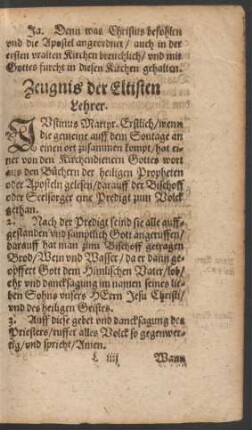 Ja. Denn was Christus befohlen
vnd die Apostel angeordnet / auch in der
ersten vralten Kirchen breuchlich / vnd mit
Gottes furcht in diesen Kirchen gehalten.
Zeugnis der Eltisten
Lehrer.
IVstinus Martyr. Erstlich / wenn
die gemeine auff dem Sontage an
einen ort zusammen kompt / hat ei-
ner von den Kirchendienern Gottes wort
aus den Büchern der heiligen Propheten
oder Aposteln gelesen / darauff der Bischoff
oder Seelsorger eine Predigt zum Volck
gethan.
2. Nach der Predigt seind sie alle auff-
gestanden vnd samptlich Gott angeruffen /
darauff hat man zum Bischoff getragen
Brod / Wein vnd Wasser / da er dann ge-
opffert Gott dem Himlischen Vater / lob /
ehr vnd dancksagung im namen seines lie-
ben Sohns vnsers HErrn Jesu Christi /
vnd des heiligen Geistes.
3. Auff diese gebet vnd dancksagung des
Priesters / ruffet alles Volck so gegenwer-
tig / vnd spricht / Amen.
L iiij Wann